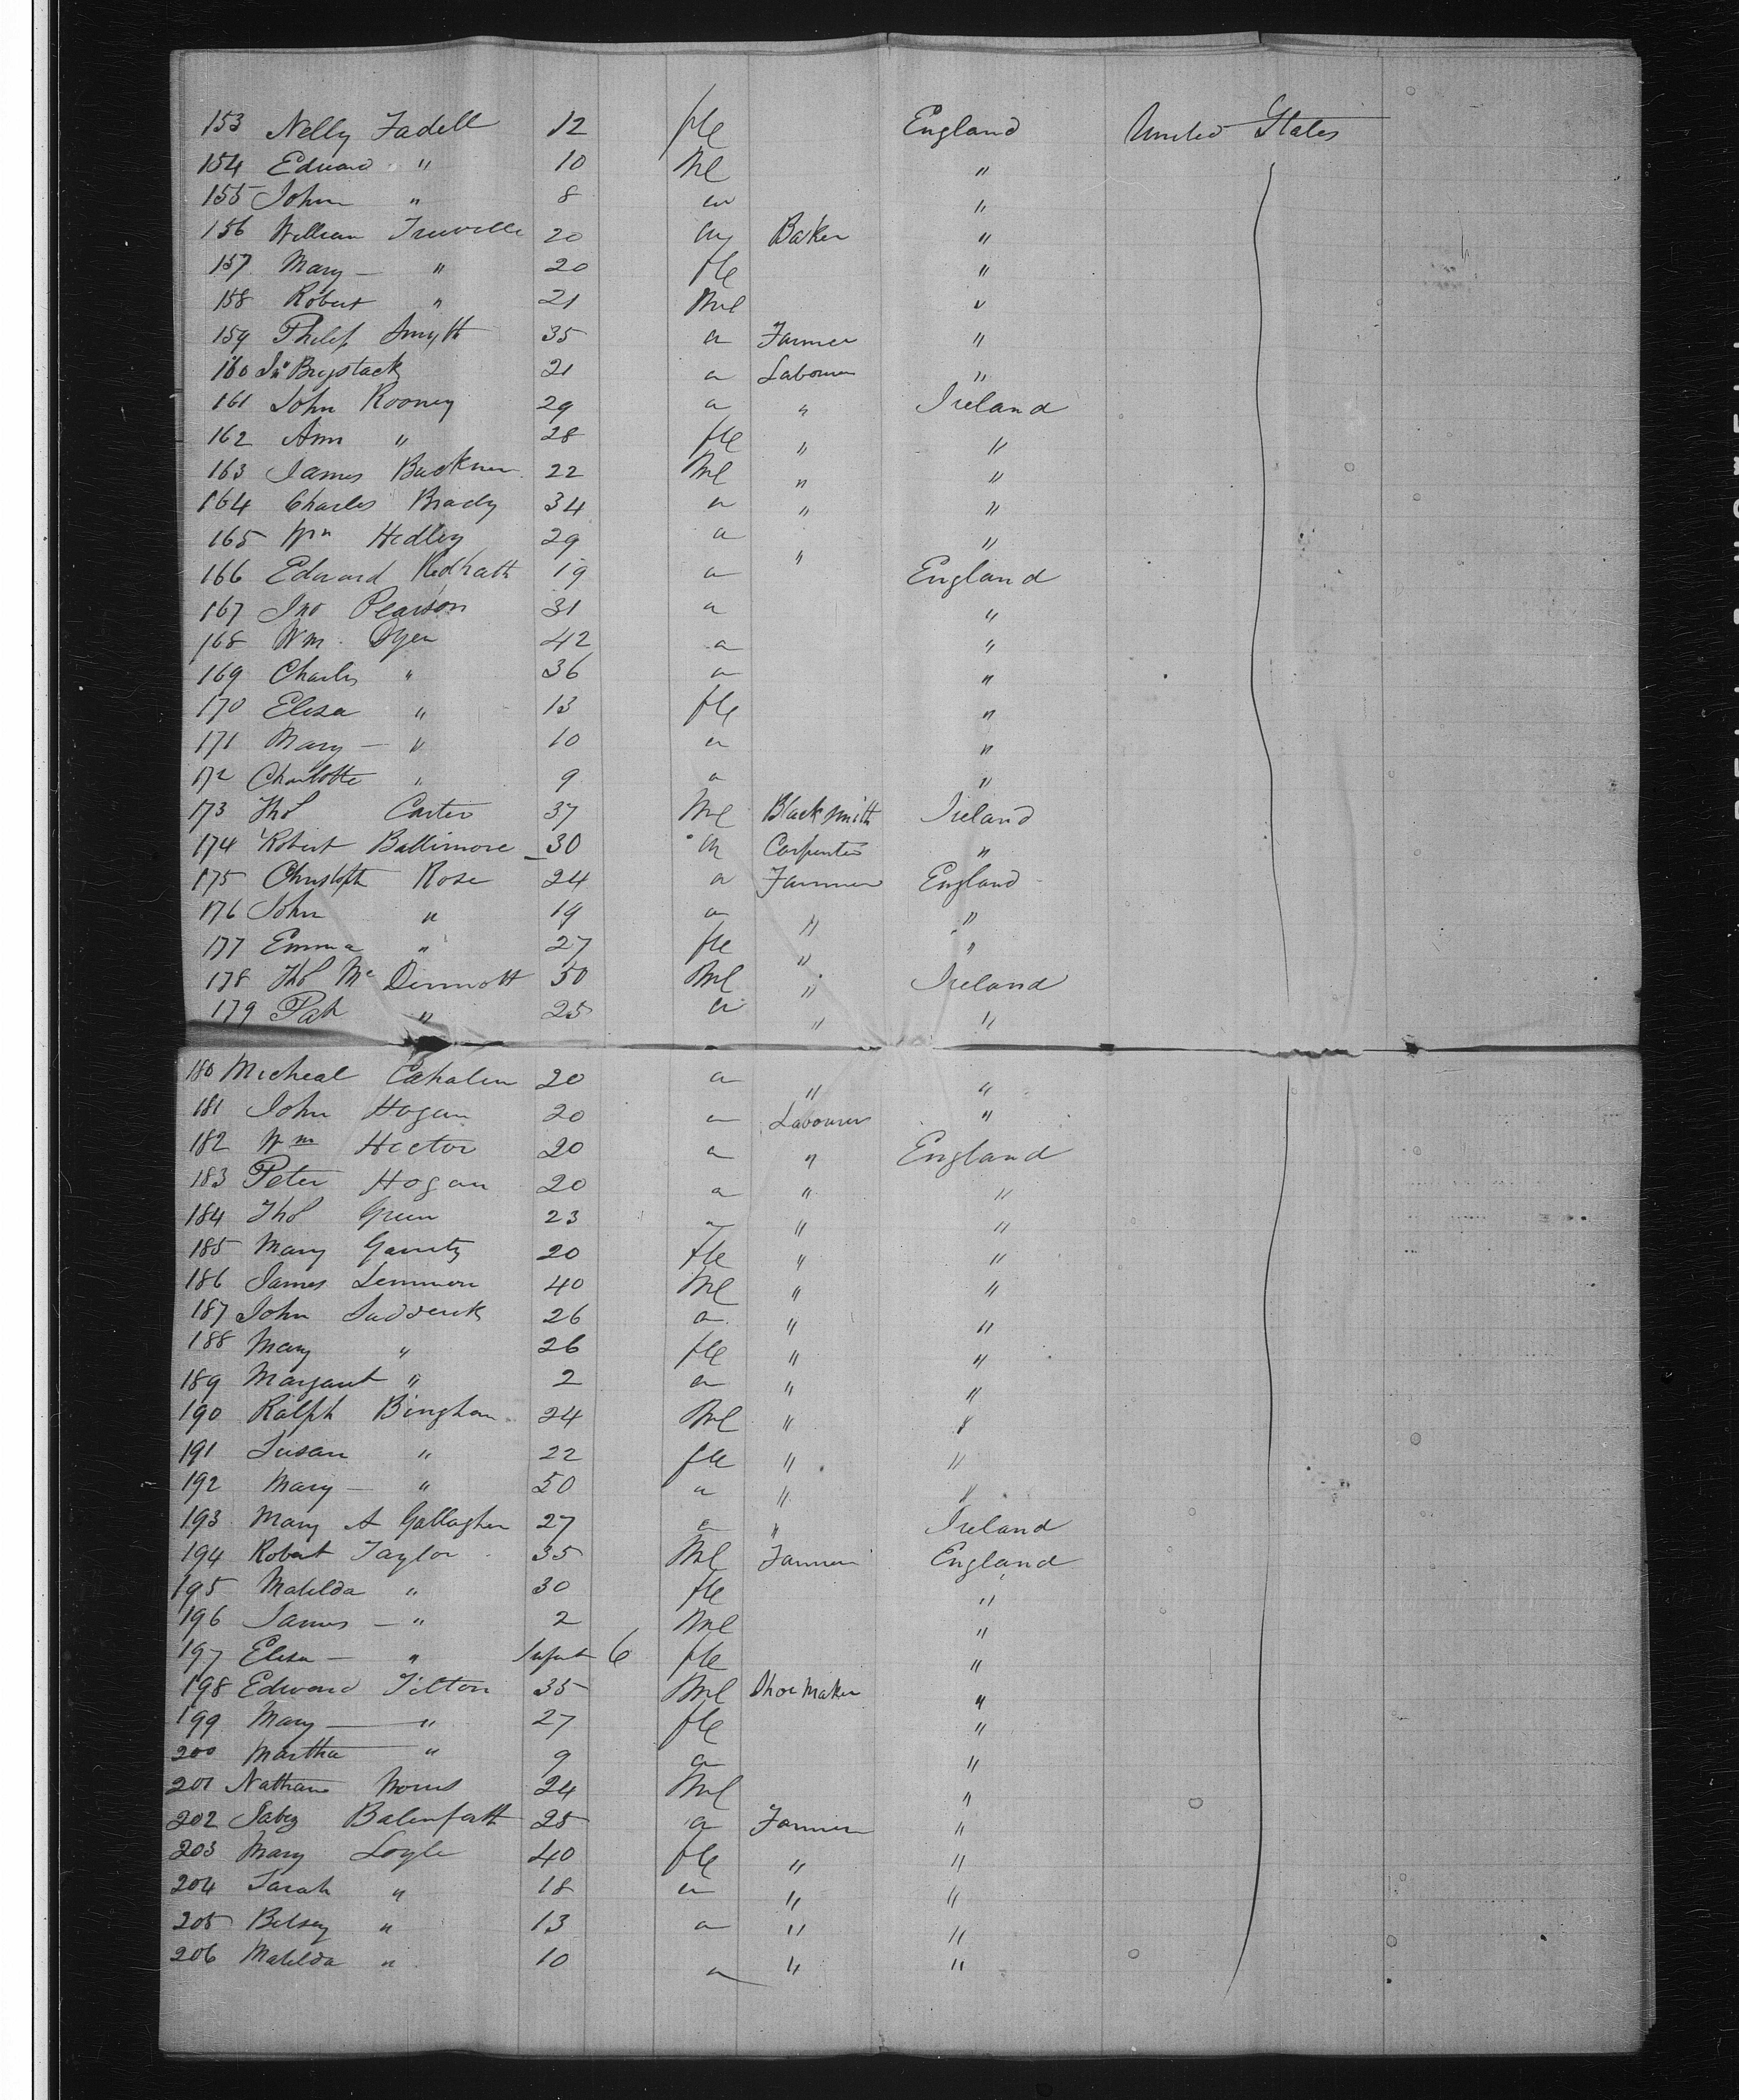 153 Nelly Fadell 12 fle England United States
154 Edward " 10 Ml "
155 John " 8 "
156 William 20 Baker "
157 Mary — " 20 fle "
158 Robert " 21 Ml "
159 Philip Smyth 35 Farmer "
160 21 Labourer "
161 John Rooney 29 " Ireland
162 Ann " 28 fle " "
163 James 22 Ml " "
164 Charles Brady 34 " "
165 Wm Hedley 29 " "
166 Edward 19 England
167 Jno Pearson 31 "
168 Wm. Dyer 42 "
169 Charles " 36 "
170 Elisa " 13 fle "
171 Mary — " 10 "
172 Charlotte " 9 "
173 Tho Carter 37 Ml Blacksmith Ireland
174 Robert Baltimore 30 Carpenter "
175 Christoph Rose 24 Farmer England
176 John " 19 " "
177 Emma " 27 fle " "
178 Tho Mc Dermott 50 Ml " Ireland
179 Pat " 25 " "
180 Micheal Cahalin 20 " "
181 John Hogan 20 Labourer "
182 Wm Hector 20 " England
183 Peter Hogan 20 " "
184 Tho Green 23 " "
185 Mary 20 fle " "
186 James Lemmon 40 Ml " "
187 John 26 " "
188 Mary " 26 fle " "
189 Margaret " 2 " "
190 Ralph Bingham 24 Ml " "
191 Susan " 22 fle " "
192 Mary — " 50 " "
193 Mary A Gallagher 27 " Ireland
194 Robert Taylor 35 Ml Farmer England
195 Matilda " 30 fle "
196 James — " 2 Ml "
197 Elisa — " Infant 6 fle "
198 Edward Tilton 35 Ml Shoemaker "
199 Mary — " 27 fle "
200 Martha — " 9 "
201 24 Ml "
202 Jabez 25 Farmer "
203 Mary Loyle 40 fle " "
204 Sarah " 18 " "
205 Betsey " 13 " "
206 Matilda " 10 " "